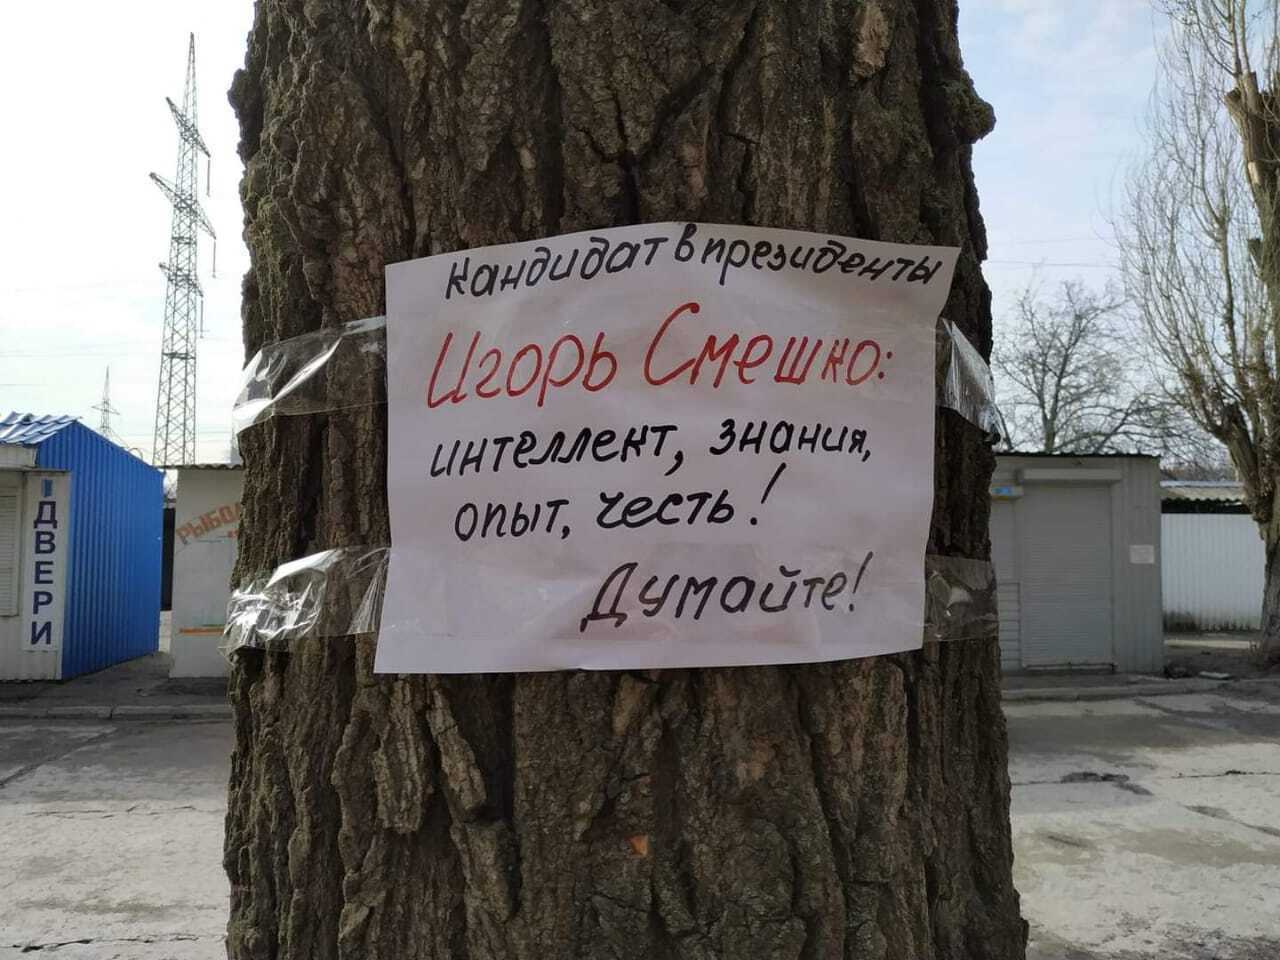 кандидат в президенты
Игорь Смешко:
интеллект, знания,
опыт, честь!
Думайте!
ДВЕРИ
РЫБО